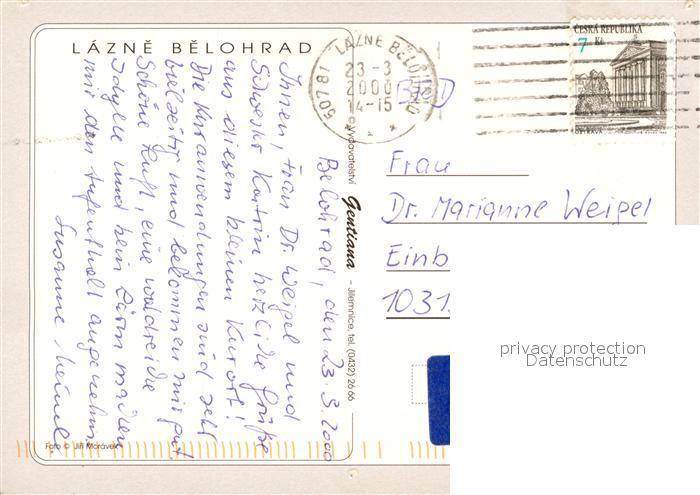 LÁZNĚ BĚLOHRAD
Belohrad, den 23.3.2000
Ihnen, Frau Dr. Weigel und
Schwester Katrin herzliche Grüße
aus diesem kleinen Kurort!
Die Kuranwendungen sind sehr
vielseitig und bekommen mir gut.
Schöne Luft, eine waldreiche
Idylle und kein Lärm machen
mir den Aufenthalt angenehm.
Susanne
Foto © Jiří Morávek
© Vydavatelství Gentiana – Jilemnice, tel. (0432) 26 66
507 81 LÁZNĚ BĚLOHRAD
23 -3
2000
14-15
BRD
ČESKÁ REPUBLIKA
7 Kč
OSTRAVA
Frau
Dr. Marianne Weigel
Einb
1031
privacy protection
Datenschutz